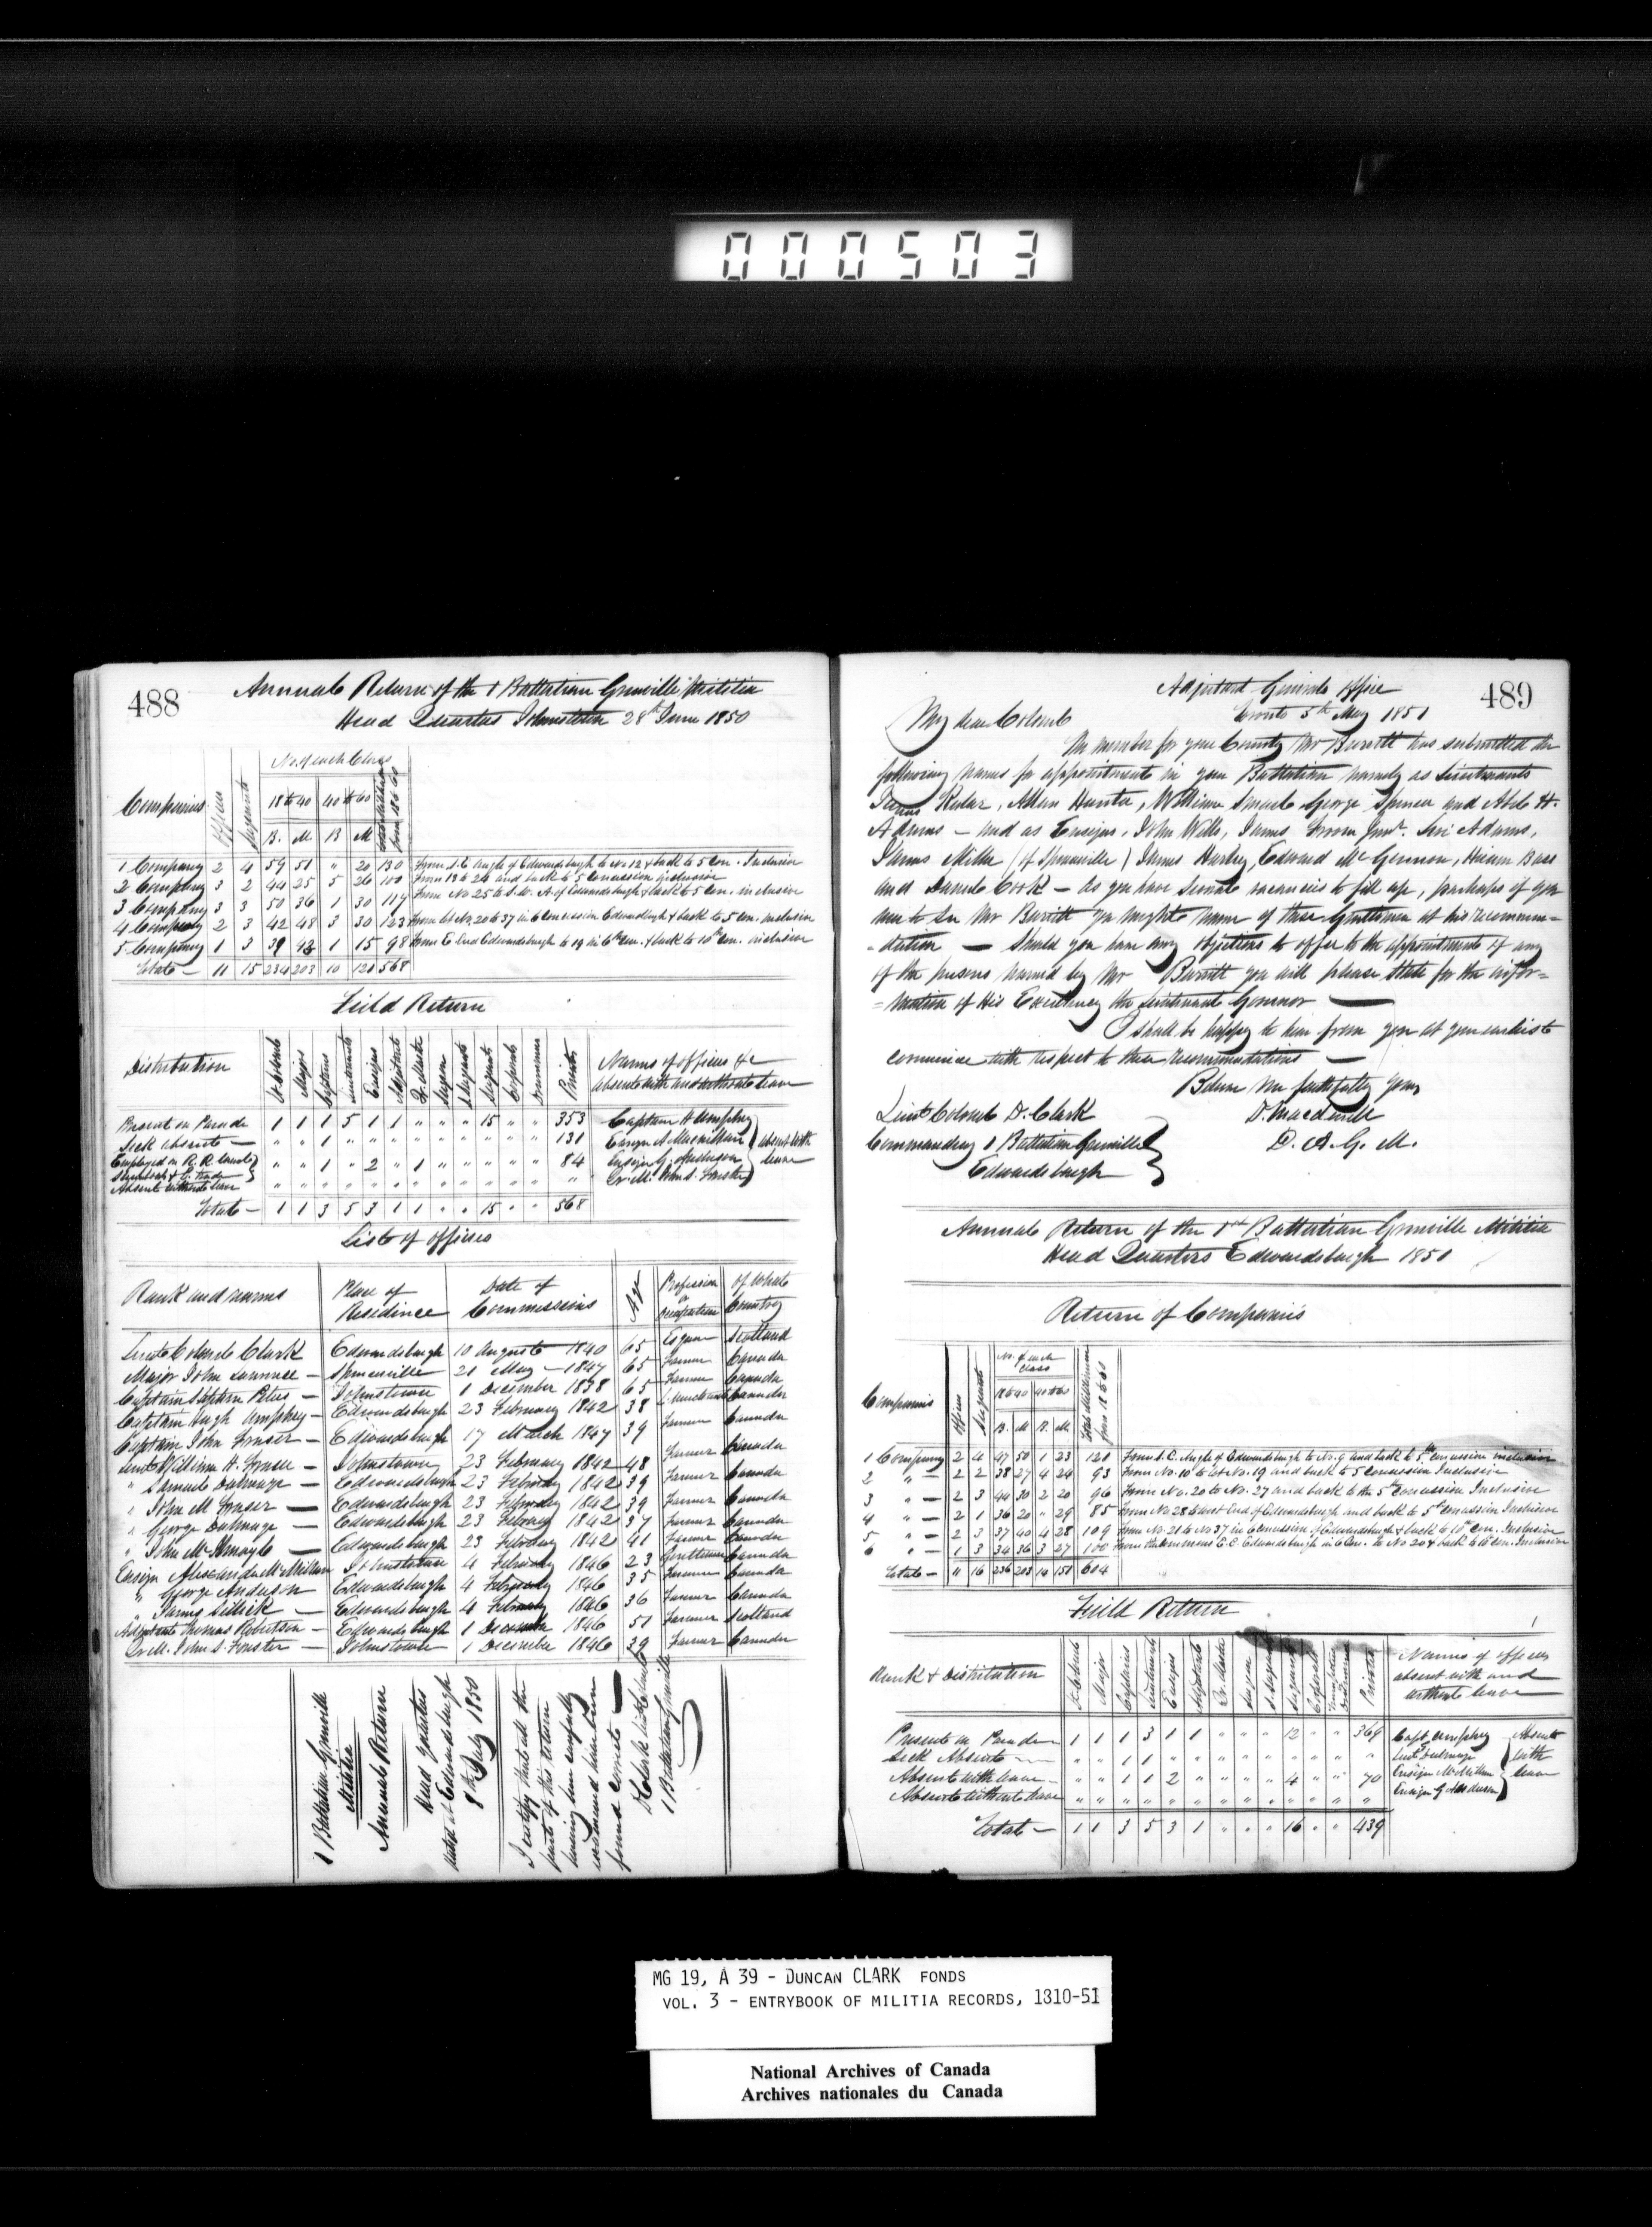 000503
488
Annual Return of the 1 Battalion Grenville Militia
Head Quarters Johnstown 28th June 1850
Companies Officers Sergeants No. of each Class 18 to 40 40 to 60 B. M. B M from 18 to 60
1 Company 2 4 59 51 " 20 130 From S.E. angle of Edwardsburgh to No 12 & back to 5 Con. Inclusive
2 Company 3 2 44 25 5 26 100 From 13 to 24 and back to 5 Concession inclusive
3 Company 3 3 50 36 1 30 117 From No 25 to S.W. A. of Edwardsburgh & back to 5 Con. inclusive
4 Company 2 3 42 48 3 30 123 From Lot No. 20 to 37 in 6 Concession Edwardsburgh & back to 5 Con. inclusive
5 Company 1 3 39 43 1 15 98 From E. End Edwardsburgh to 19 in 6th Con. & back to 10th Con. inclusive
Total — 11 15 234 203 10 121 568
Field Return
Distribution Lt Colonel Major Captains Lieutenants Ensigns Adjutant Qr. Master Surgeon Sergeants Corporals Drummers Privates Names of officers &c absent with and without leave
Present on Parade 1 1 1 5 1 1 " " " 15 " " 353 Captain H Amphrey
Sick absent — " " 1 " " " " " " " " " 131 Ensign A Macmillan
Employed on R. R. Canals " " 1 " 2 " 1 " " " " " 84 Ensign G. Anderson
Steamboats &
Absent without leave " " " " " " " " " " " " " Qr. M. John S. Forster
absent with leave
Total — 1 1 3 5 3 1 1 " " 15 " " 568
List of officers
Rank and names Place of Residence Date of Commissions Age Profession or Occupation Of What Country
Lieut Colonel Clark Edwardsburgh 10 August 1840 65 Esquire Scotland
Major John Lawrence — Spencerville 21 May — 1847 65 Farmer Canada
Captain Stephen Peters — Johnstown 1 December 1838 65 Farmer Canada
Captain Hugh Amphrey — Edwardsburgh 23 February 1842 38 Merchant Canada
Captain John Fraser — Edwardsburgh 17 March 1847 39 Farmer Canada
Lieut William H. Fraser — Johnstown 23 February 1842 48 Farmer Canada
" Samuel Dulmage — Edwardsburgh 23 February 1842 39 Farmer Canada
" John M Fraser — Edwardsburgh 23 February 1842 39 Farmer Canada
" George Dulmage — Edwardsburgh 23 February 1842 37 Farmer Canada
" John — Edwardsburgh 23 February 1842 41 Farmer Canada
Ensign Alexander McMillan Johnstown 4 February 1846 23 Gentleman Canada
" George Anderson Edwardsburgh 4 February 1846 35 Farmer Canada
" James Sillick — Edwardsburgh 4 February 1846 36 Farmer Canada
Adjutant Thomas Robertson — Edwardsburgh 1 December 1846 51 Farmer Scotland
Qr M. John S. Forster — Johnstown 1 December 1846 39 Farmer Canada
1 Battalion Grenville
Militia
Annual Return
Head Quarters
Dated at Edwardsburgh
8th July 1850
I certify that all the
parts of this return
having been carefully
examined have been
found correct —
D Clark Lt Colonel
1 Battalion Grenville
489
Adjutant Generals office
Toronto 5th May 1851
My dear Colonel
The member for your County Mr Burritt has submitted the
following names for appointment in your Battalion namely as Lieutenants
James Keeler, Allan Hunter, William Smail George Spencer and Abel H.
Adams — and as Ensigns, John Wills, James Froom Junr. Levi Adams,
James Miller (of Spencerville) James Hartney, Edward McGannon, Hiram Bass
and Daniel Cook — As you have several vacancies to fill up, perhaps if you
were to see Mr Burritt you might name of these Gentlemen at his recommen=
=dation — Should you have any objections to offer to the appointment of any
of the persons named by Mr Burritt you will please state for the infor=
=mation of His Excellency the Lieutenant Governor —
I shall be happy to hear from you at your earliest
convenience with respect to these recommendations —
Believe me faithfully yours
Lieut Colonel D. Clark D. Macdonell
Commanding 1 Battalion Grenville D. A. G. M.
Edwardsburgh
Annual Return of the 1st Battalion Grenville Militia
Head Quarters Edwardsburgh 1851
Return of Companies
Companies Officers Sergeants No. of each Class 18 to 40 40 to 60 B. M B. M. from 18 to 60
1 Company 2 4 47 50 1 23 121 From S. E. Angle of Edwardsburgh to No. 9 and back to 5th Concession inclusive
2 " — 2 2 38 27 4 24 93 From No. 10 to Lot No. 19 and back to 5 Concession Inclusive
3 " — 2 3 44 30 2 20 96 From No. 20 to No. 27 and back to the 5th Concession Inclusive
4 " — 2 1 36 20 " 29 85 From No 28 to West End of Edwardsburgh and back to 5th Concession Inclusive
5 " — 2 3 37 40 4 28 109 From No. 21 to No 37 in 6 Concession of Edwardsburgh & back to 10th Con. Inclusive
6 " — 1 3 34 36 3 27 100 From the Commence E. C. Edwardsburgh in 6 Con. to No 20 & back to 10 Con. Inclusive
Total — 11 16 236 203 14 151 604
Field Return
Rank & Distribution Lt Colonel Major Captains Lieutenants Ensigns Adjutant Qr. Master Surgeon Sergeants Corporals Privates Names of officers absent with and without leave
Present on Parade — 1 1 1 3 1 1 " " " 12 " " 369 Capt Amphrey
Sick Absent — " " 1 1 " " " " " " " " " Lieut Dulmage
Absent with leave — " " 1 1 2 " " " " 4 " " 70 Ensign McMillan
Absent without leave " " " " " " " " " " " " " Ensign G Anderson
Absent with leave
Total — 1 1 3 5 3 1 " " " 16 " " 439
MG 19, A 39 - DUNCAN CLARK FONDS
VOL. 3 - ENTRYBOOK OF MILITIA RECORDS, 1810-51
National Archives of Canada
Archives nationales du Canada